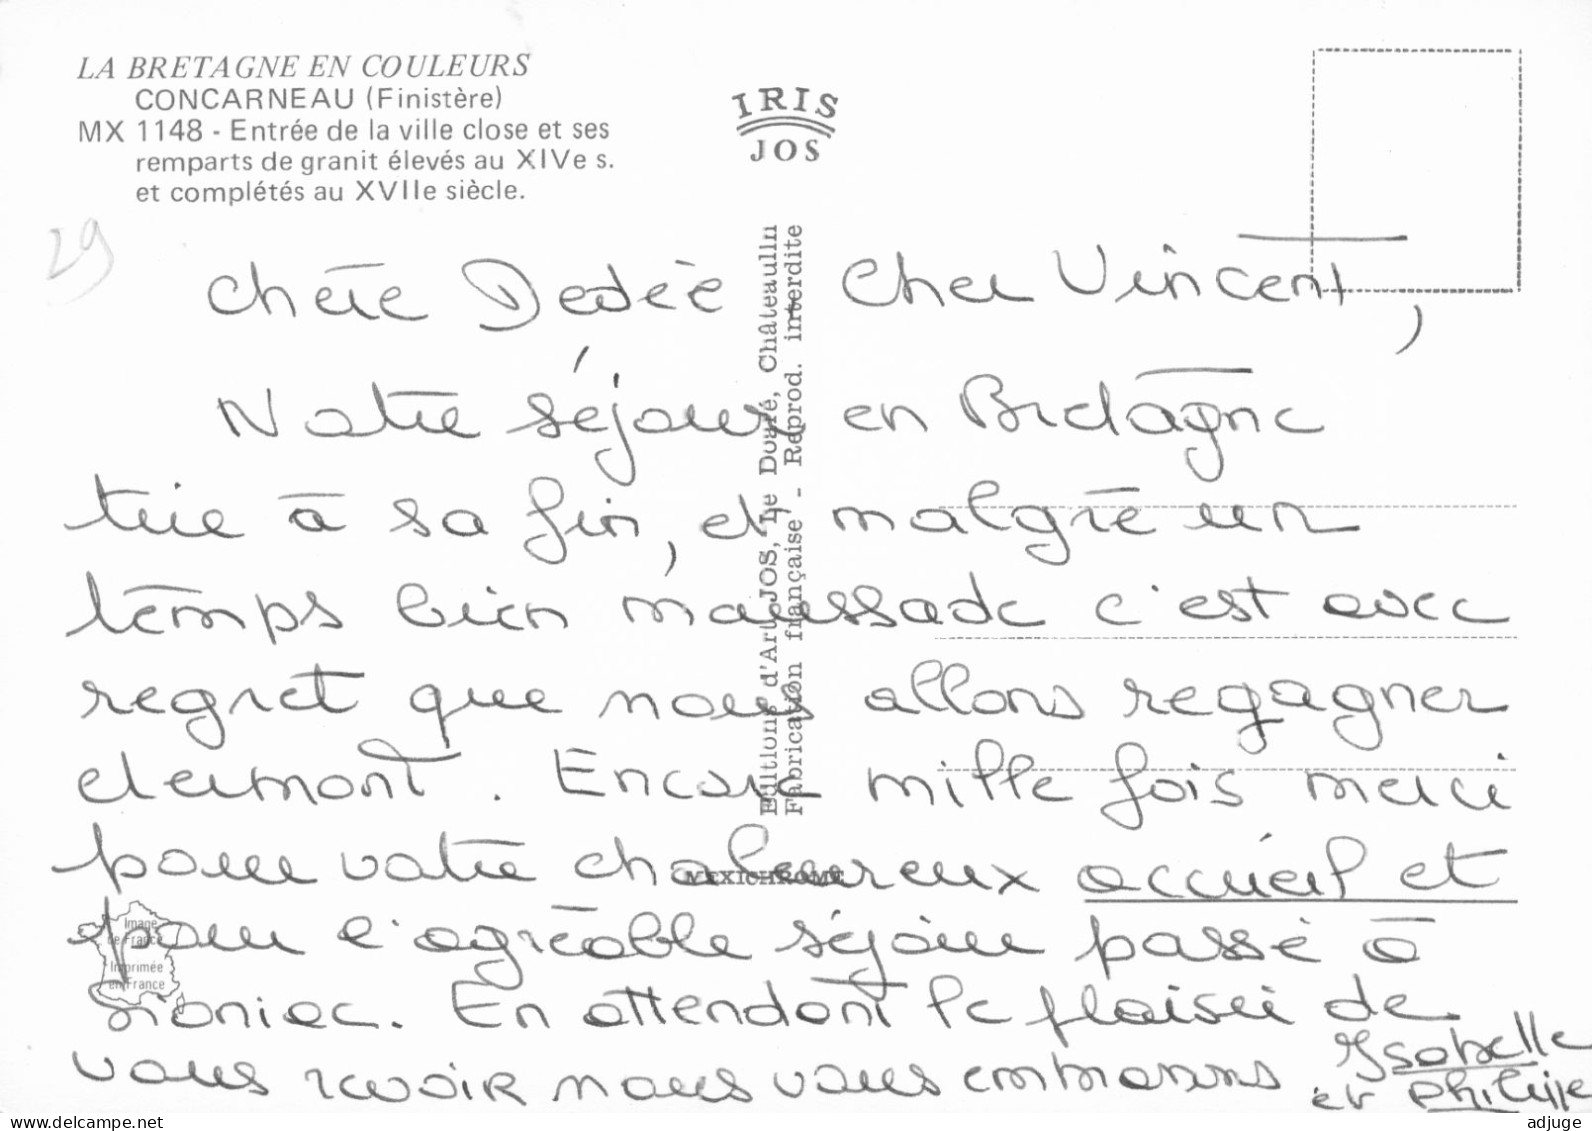 LA BRETAGNE EN COULEURS
CONCARNEAU (Finistère)
MX 1148 - Entrée de la ville close et ses
remparts de granit élevés au XIVe s.
et complétés au XVIIe siècle.
IRIS
JOS
29
Editions d'Art JOS, Le Doaré, Châteaulin
Fabrication française - Reprod. interdite
MEXICHROME
Image
de France
Imprimée
en France
Chère Dedée Cher Vincent,
Notre séjour en Bretagne
tire à sa fin, et malgré un
temps bien maussade c'est avec
regret que nous allons regagner
clermont. Encore mille fois merci
pour votre chaleureux accueil et
pour l'agréable séjour passé à
En attendant le plaisir de
vous revoir nous vous embrassons Isabelle
et Philippe
delcampe.net
adjuge